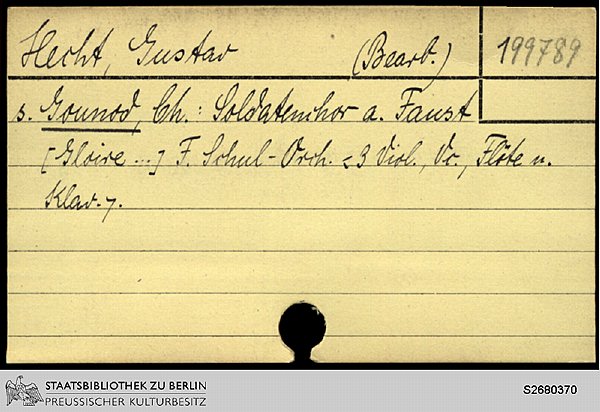 Hecht, Gustav (Bearb.) 199789
s. Gounod, Ch.: Soldatenchor a. Faust
[Gloire ...] F. Schul-Orch. <3 Viol., Vc., Flöte u.
Klav.>.
STAATSBIBLIOTHEK ZU BERLIN
PREUSSISCHER KULTURBESITZ
S2680370